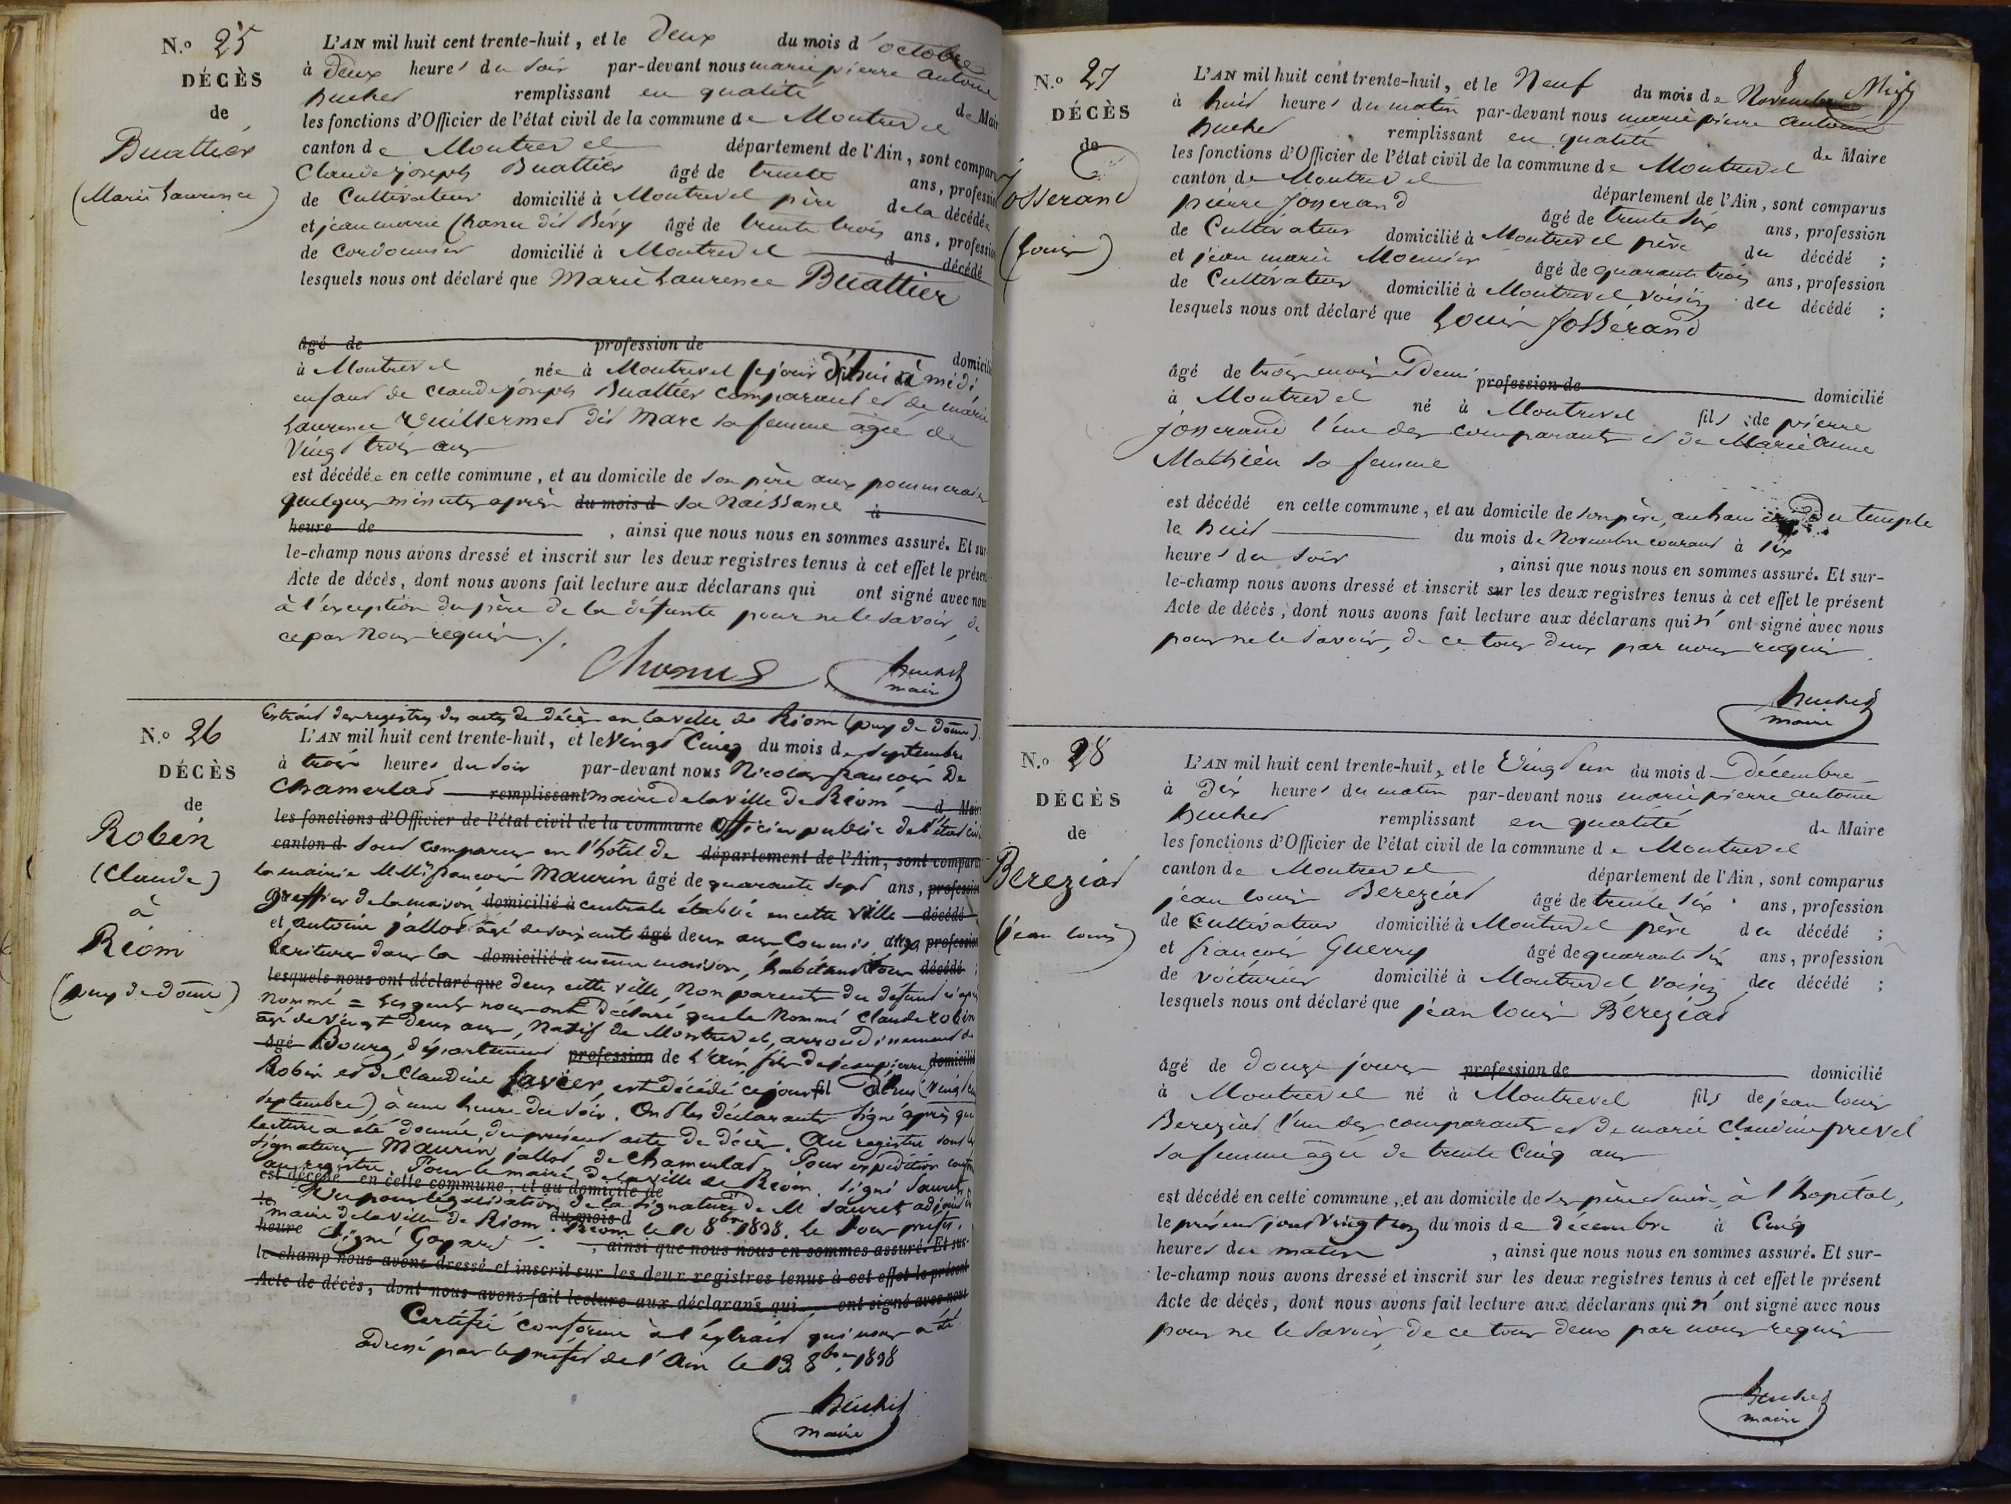 N.o 25
DÉCÈS
de
Buattier
(Marie Laurence)
L'AN mil huit cent trente-huit, et le deux du mois d'octobre
à deux heures du soir par-devant nous marie pierre antoine
huchet remplissant en qualité de Mair
les fonctions d'Officier de l'état civil de la commune de Montrevel
canton de Montrevel département de l'Ain, sont compar
Claude joseph Buattier âgé de trente ans, profession
de Cultivateur domicilié à Montrevel père de la décédée
et jean marie Chanu dit Béry âgé de trente trois ans, profession
de Cordonnier domicilié à Montrevel d décédé
lesquels nous ont déclaré que Marie Laurence Buattier
âgé de profession de domicilié
à Montrevel née à Montrevel ce jour d'hui à midi
enfant de Claude joseph Buattier comparant et de marie
Laurence Vuillermet dit Marc sa femme âgée de
Vingt trois ans
est décédée en cette commune, et au domicile de son père aux pommeraies
quelques minutes après du mois d sa Naissance à
heure de , ainsi que nous nous en sommes assuré. Et sur
le-champ nous avons dressé et inscrit sur les deux registres tenus à cet effet le présent
Acte de décès, dont nous avons fait lecture aux déclarans qui ont signé avec nous
à l'exception du père de la défunte pour ne le savoir, de
ce par Nous requis ./.
Chanus huchet
maire
N.o 26
DÉCÈS
de
Robin
(Claude)
à
Riom
(puy de dôme)
Extrait des registres des actes de décès en la ville de Riom (puy de dôme).
L'AN mil huit cent trente-huit, et le Vingt Cinq du mois de septembre
à trois heures du soir par-devant nous Nicolas françois De
Chamerlat remplissant maire de la ville de Riom d Maire
les fonctions d'Officier de l'état civil de la commune officier public de l'état civil
canton d sont comparus en l'hôtel de département de l'Ain, sont comparus
la mairie MMrs françois Maurin âgé de quarante sept ans, profession
greffier de la maison domicilié à centrale établie en cette ville décédé
et antoine jallot âgé de soixante âgé deux ans Commis aux profession
Ecritures dans la domicilié à même maison, habitant tous décédé ;
lesquels nous ont déclaré que deux cette ville, Non parents du défunt ci après
Nommé = Lesquels nous ont déclaré que le Nommé Claude robin
âgé de vingt deux ans, Natif de Montrevel, arrondissement de
âgé Bourg, département profession de l'Ain fils de jean pierre domicilié
Robin et de Claudine favier, est décédé ce jour fil d'hui (Vingt cinq
septembre) à une heure du soir. Ont les déclarants signé après que
lecture a été donnée, du présent acte de décès. Au registre sont les
signatures Maurin, jallot de Chamerlat. Pour expédition conforme
au registre. Pour le maire de la ville de Riom. signé Sauret,
est décédé en cette commune, et au domicile de
Vu pour légalisation de la signature de M Sauret adjoint
le maire de la ville de Riom. du mois d Riom le 10 8bre 1838. le Sous préfet.
heure signé Gopard. , ainsi que nous nous en sommes assuré. Et sur-
le-champ nous avons dressé et inscrit sur les deux registres tenus à cet effet le présent
Acte de décès, dont nous avons fait lecture aux déclarans qui ont signé avec nous
Certifié conforme à l'extrait qui nous a été
adressé par le préfet de l'Ain le 13 8bre 1838
huchet
maire
N.o 27
DÉCÈS
de
Josserand
(Louis)
L'AN mil huit cent trente-huit, et le Neuf du mois de Novembre
à huit heures du matin par-devant nous marie pierre antoine
huchet remplissant en qualité de Maire
les fonctions d'Officier de l'état civil de la commune de Montrevel
canton de Montrevel département de l'Ain, sont comparus
pierre Josserand âgé de trente six ans, profession
de Cultivateur domicilié à Montrevel père du décédé ;
et jean marie Meunier âgé de quarante trois ans, profession
de Cultivateur domicilié à Montrevel voisin du décédé ;
lesquels nous ont déclaré que Louis Josserand
âgé de trois mois et demi profession de domicilié
à Montrevel né à Montrevel fils de pierre
Josserand l'un des comparants et de Marie Anne
Mathieu sa femme
est décédé en cette commune, et au domicile de son père, au hameau du temple
le huit du mois de Novembre courant à six
heures du soir , ainsi que nous nous en sommes assuré. Et sur-
le-champ nous avons dressé et inscrit sur les deux registres tenus à cet effet le présent
Acte de décès, dont nous avons fait lecture aux déclarans qui n'ont signé avec nous
pour ne le savoir, de ce tous deux par nous requis.
huchet
maire
N.o 28
DÉCÈS
de
Bereziat
(jean louis)
L'AN mil huit cent trente-huit, et le Vingt un du mois d décembre
à Dix heures du matin par-devant nous marie pierre antoine
huchet remplissant en qualité de Maire
les fonctions d'Officier de l'état civil de la commune de Montrevel
canton de Montrevel département de l'Ain, sont comparus
jean louis Bereziat âgé de trente six ans, profession
de Cultivateur domicilié à Montrevel père du décédé ;
et françois Guerry âgé de quarante six ans, profession
de voiturier domicilié à Montrevel voisin du décédé ;
lesquels nous ont déclaré que jean louis Béreziat
âgé de douze jours profession de domicilié
à Montrevel né à Montrevel fils de jean louis
Bereziat l'un des comparants et de marie Claudine prevel
sa femme âgée de trente Cinq ans
est décédé en cette commune, et au domicile de ses père et mère, à l'hopital,
le présent jour vingt un du mois de décembre à Cinq
heures du matin , ainsi que nous nous en sommes assuré. Et sur-
le-champ nous avons dressé et inscrit sur les deux registres tenus à cet effet le présent
Acte de décès, dont nous avons fait lecture aux déclarans qui n'ont signé avec nous
pour ne le savoir, de ce tous deux par nous requis
huchet
maire